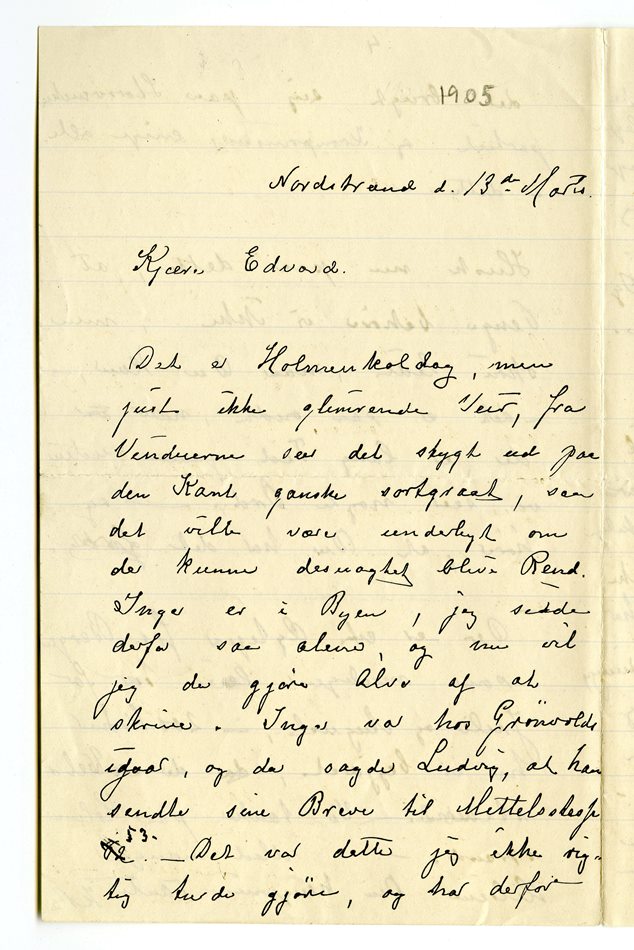 1905
Nordstrand d. 13de Marts.
Kjære Edvard.
Det er Holmenkoldag, men
just ikke glimrende Veir, fra
Vinduerne ser det skygt ud paa
den Kant ganske sortgraat, saa
det vilde være underligt om
der kunne desuagtet blive Rend.
Inger er i Byen, jeg sidder
derfor saa alene, og nu vil
jeg da gjøre Alvor af at
skrive. Inger var hos Grönvolds
igaar, og da sagde Ludvig, at han
sendte sine Breve til
53.
– Det var dette jeg ikke rig-
tig turde gjøre, og har derfor